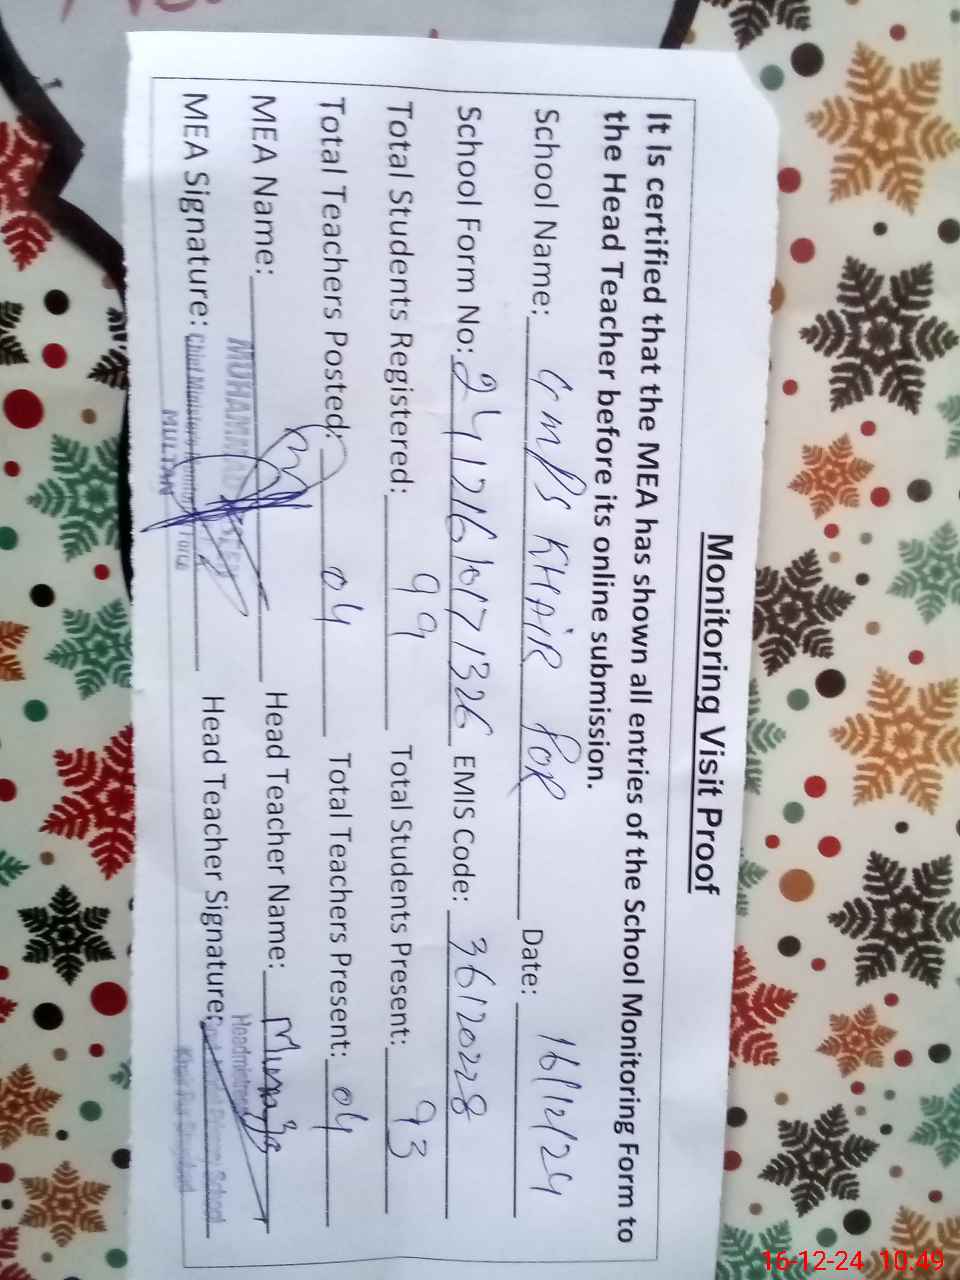 Monitoring Visit Proof
It is certified that the MEA has shown all entries of the School Monitoring Form to
the Head Teacher before its online submission.
School Name: GMPS KHAIR POR Date: 16/12/24
School Form No: EMIS Code: 36120228
Total Students Registered: 99 Total Students Present: 93
Total Teachers Posted: 04 Total Teachers Present: 04
MEA Name: MUHAMMAD Head Teacher Name:
MEA Signature: Chief Ministers Monitoring Force Head Teacher Signature: Primary School
MULTAN
Headmistress
16-12-24 10:49